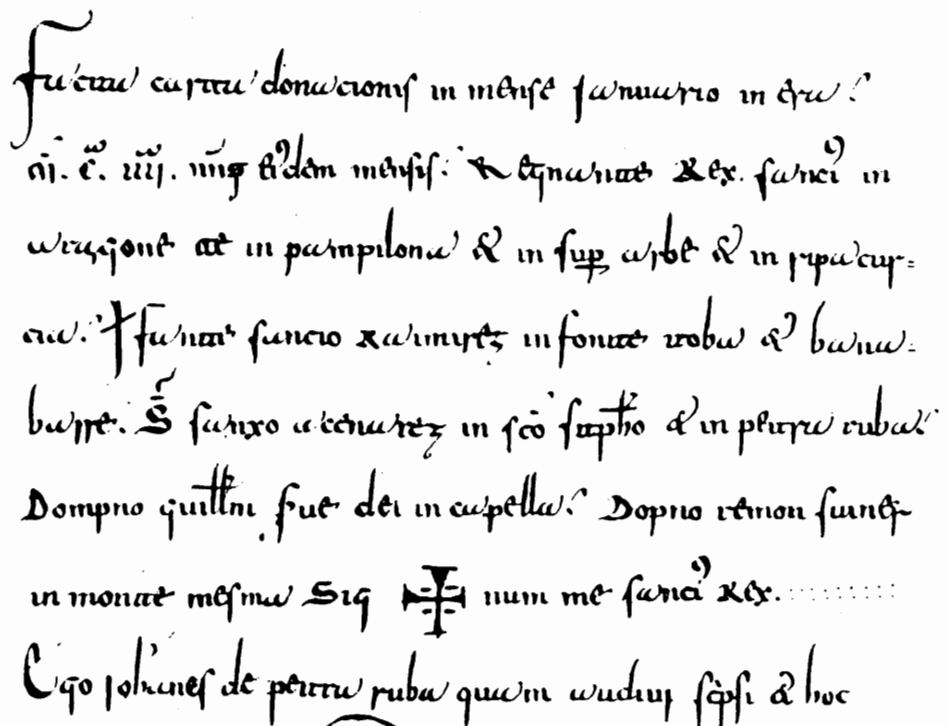 Facta carta donacionis in mense januario in era.
in mensis. Regnante Rex. sanci in
aragone at in pampilona & in sup arbe & in ripacur-
cia. fante sancio ramirez in fonte toba & bena-
barre. S sanxo acenarez in sco stepho & in petra ruba.
Dompno guillm sue dei in capella. Dopno remon
in monte mesma Sig num me sanci Rex.
Ego johanes de petra ruba quam audivi scpsi & hoc